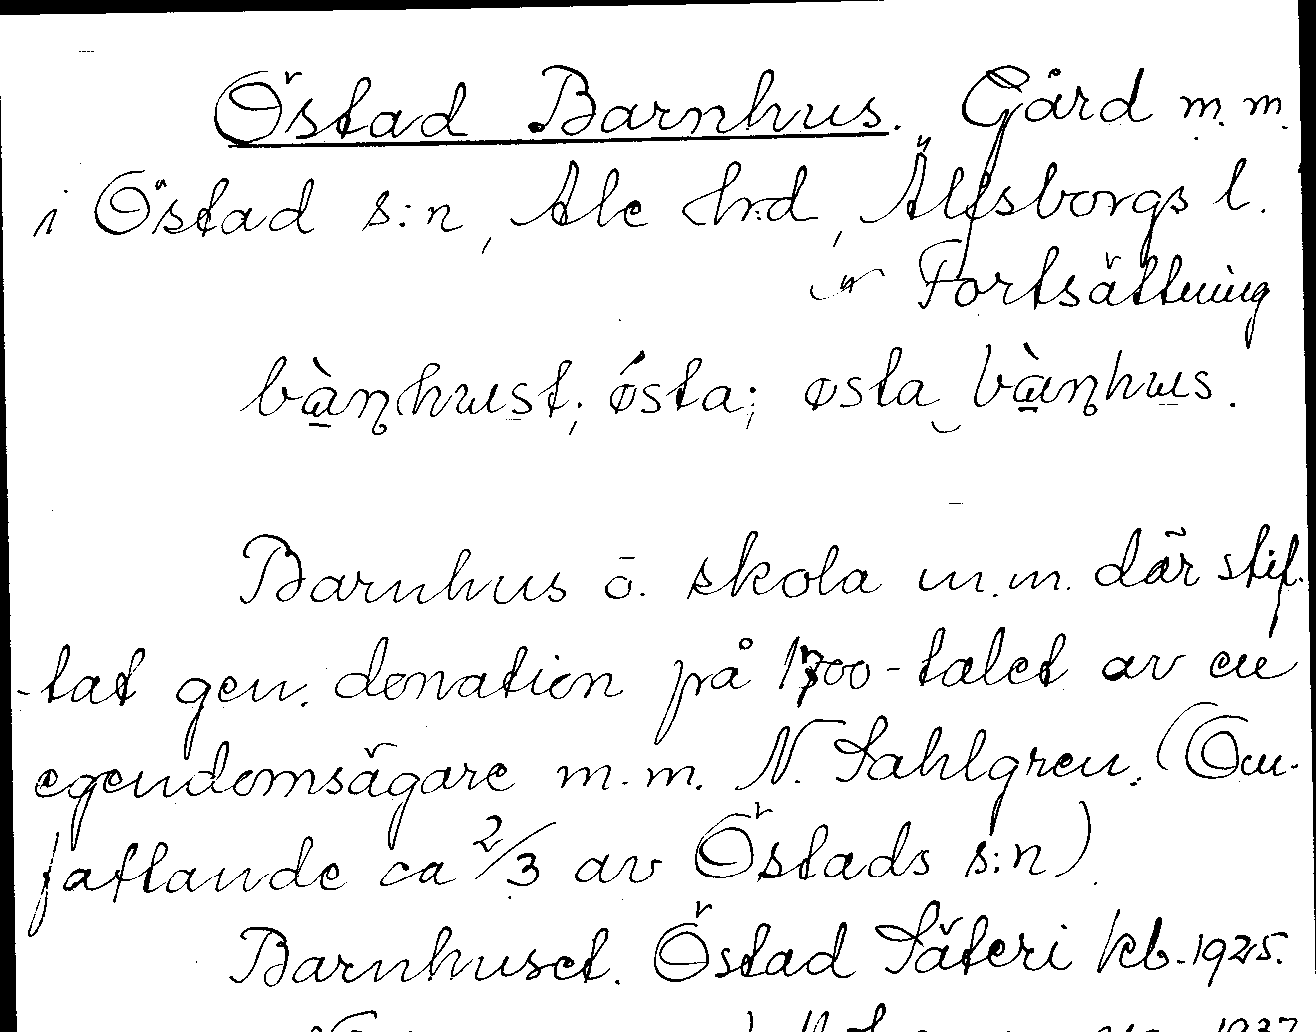 Östad Barnhus. Gård m.m.
i Östad s:n, Ale hrd, Älfsborgs l.
Fortsättning
bà̱ɳhust; ósta; østa‿bà̱ɳhus.
Barnhus o. skola m.m. där stif-
-tat gen. donation på 1700-talet av en
egendomsägare m.m. N. Sahlgren. (Om-
fattande ca 2/3 av Östads s:n)
Barnhuset. Östad Säteri kb. 1925.
1937